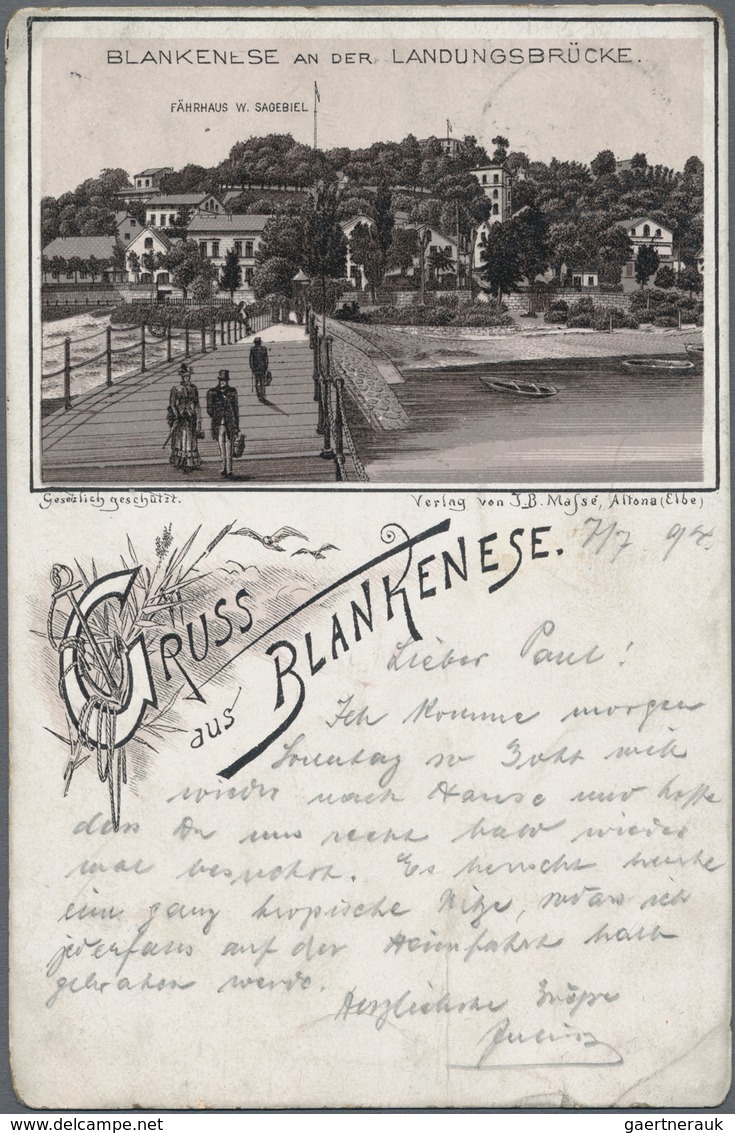 BLANKENESE AN DER LANDUNGSBRÜCKE.
FÄHRHAUS W. SAGEBIEL
Gesetzlich geschützt.
Verlag von J.B. Massé, Altona (Elbe)
GRUSS aus BLANKENESE.
7/7 94.
Lieber Paul!
Ich komme morgen
Sonntag so Gott will
wieder nach Hause und hoffe
dass Du uns recht bald wieder
mal besuchst. Es herrscht heute
eine ganz tropische Hitze, sodass ich
jedenfalls auf der Heimfahrt halb
gebraten werde.
Herzlichste Grüsse
Julius
gaertnerauk